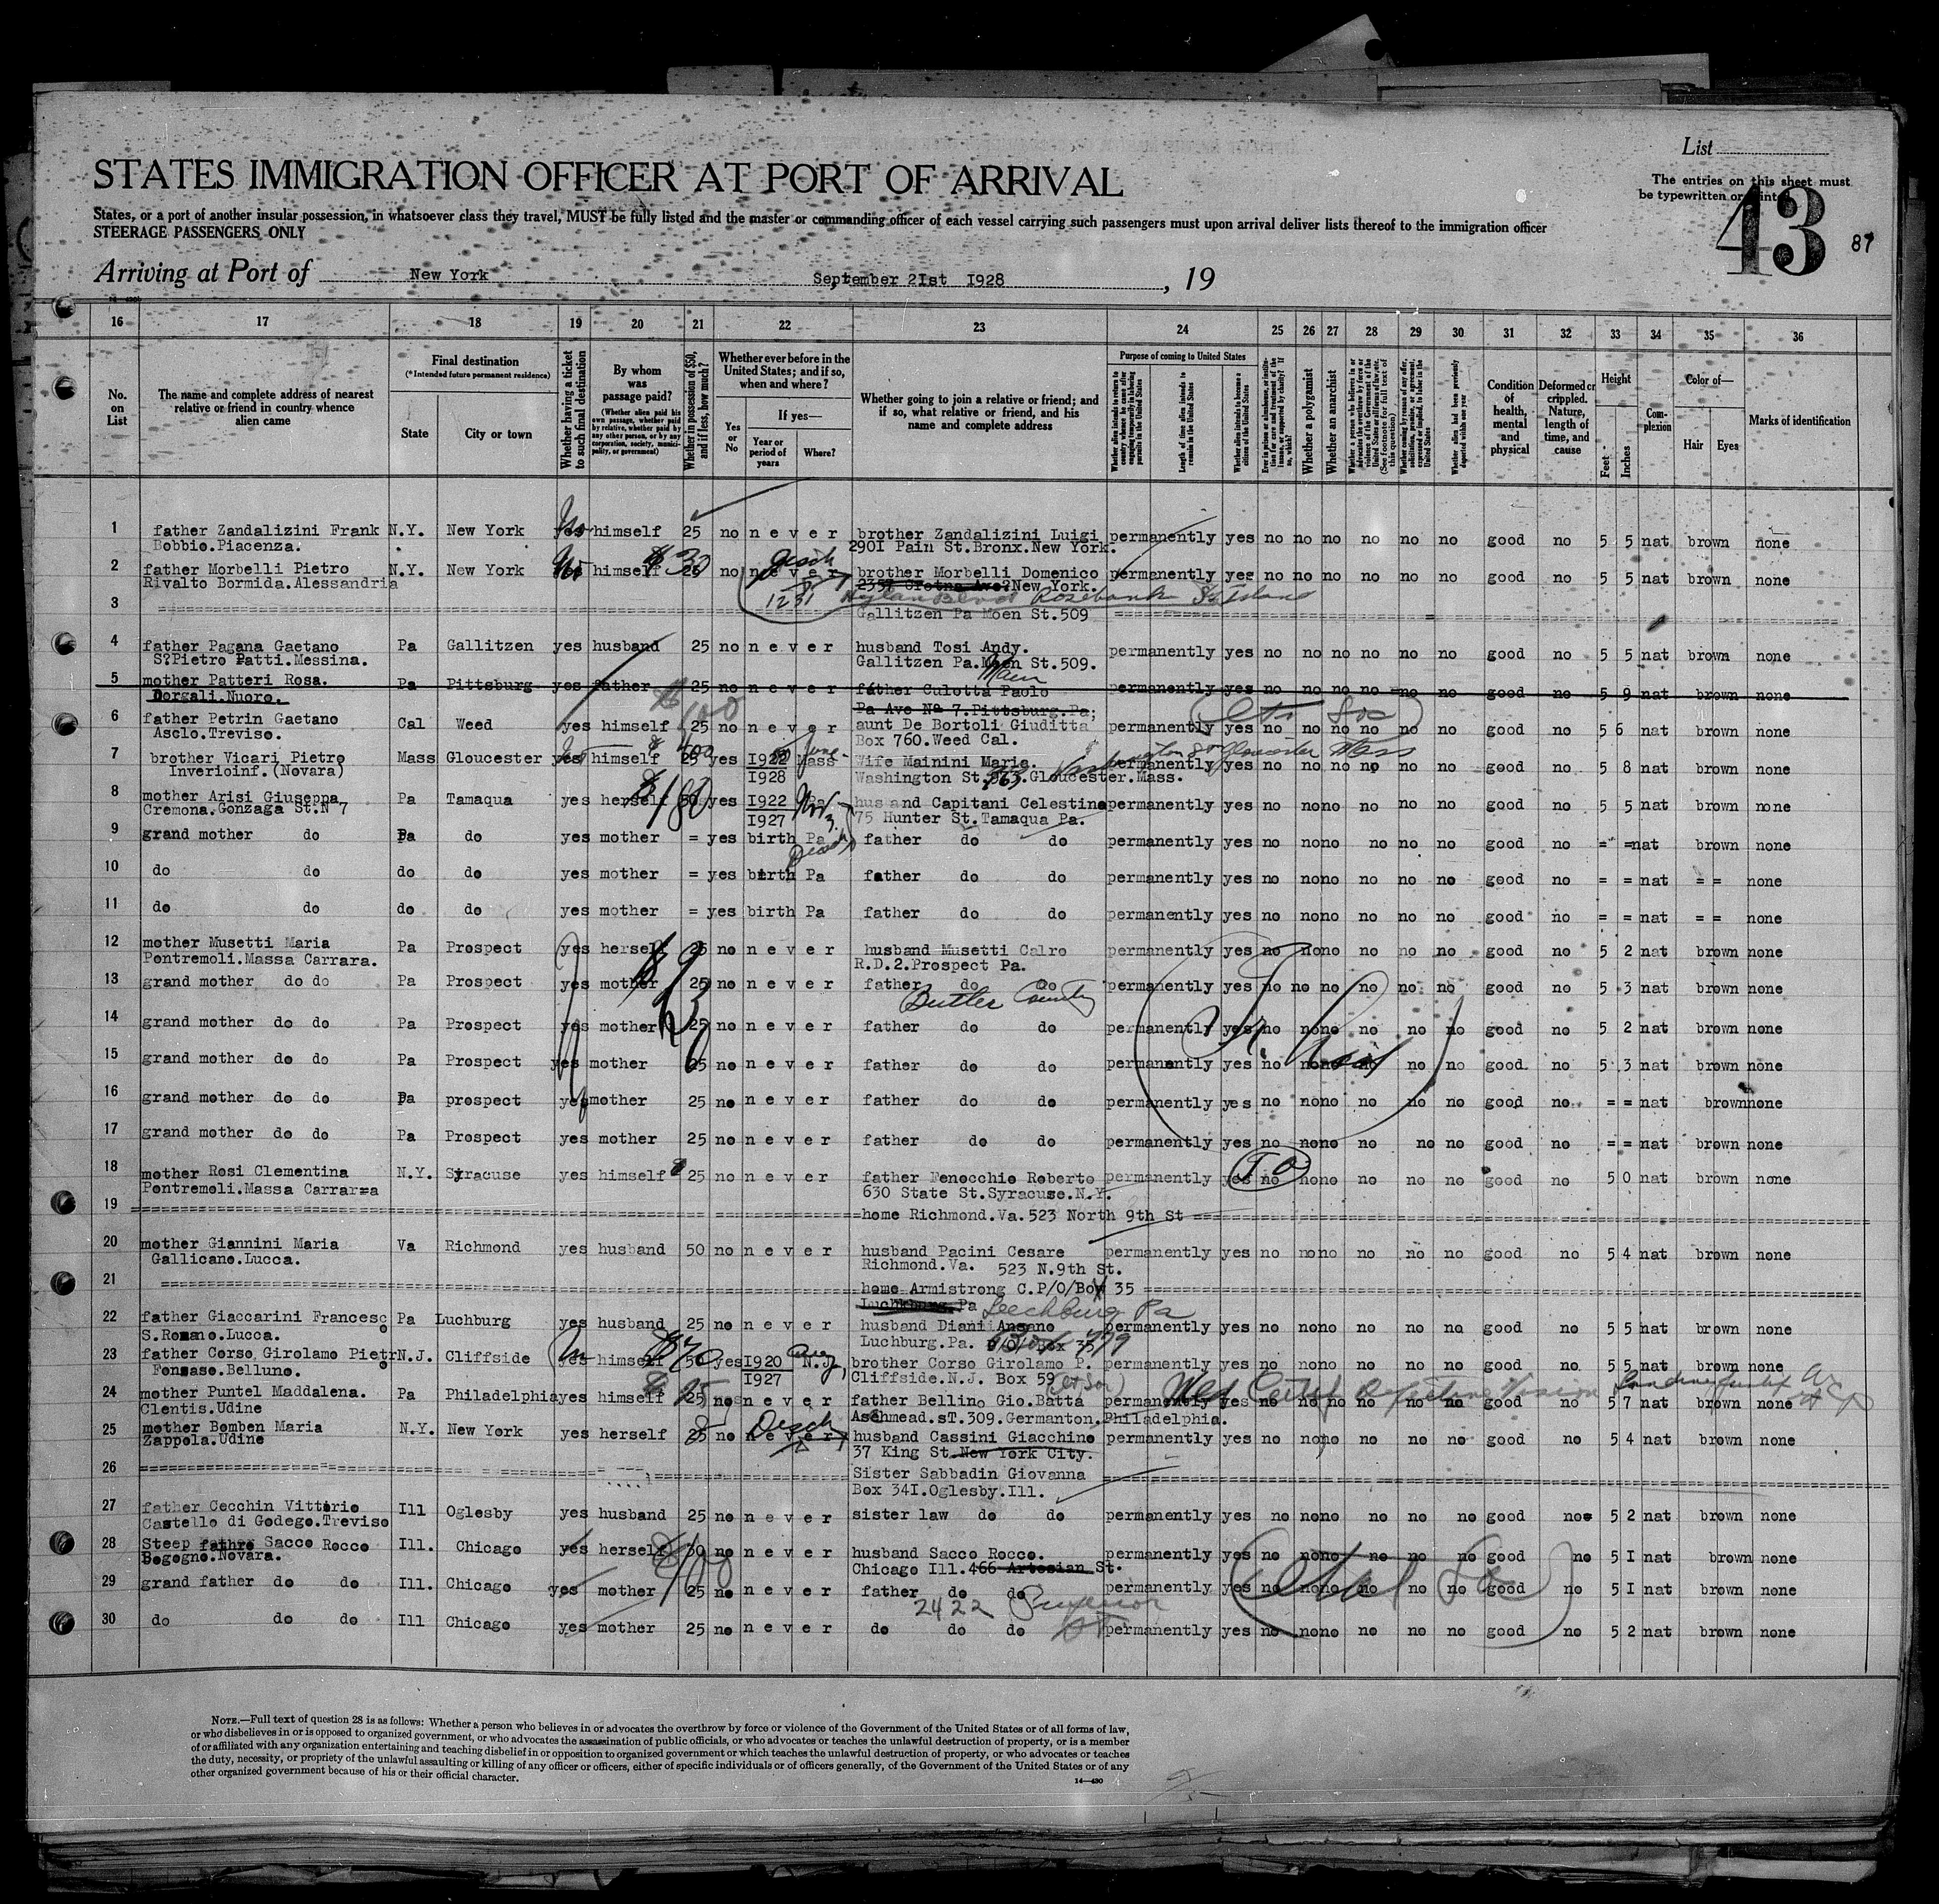 List
STATES IMMIGRATION OFFICER AT PORT OF ARRIVAL
The entries on this sheet must
be typewritten or
43
87
States, or a port of another insular possession, in whatsoever class they travel, MUST be fully listed and the master or commanding officer of each vessel carrying such passengers must upon arrival deliver lists thereof to the immigration officer
STEERAGE PASSENGERS ONLY
Arriving at Port of New York September 21st 1928 , 19
16 17 18 19 20 21 22 23 24 25 26 27 28 29 30 31 32 33 34 35 36
No. on List
The name and complete address of nearest relative or friend in country whence alien came
Final destination
(* Intended future permanent residence)
State
City or town
Whether having a ticket to such final destination
By whom was passage paid?
(Whether alien paid his own passage, whether paid by relative, whether paid by any other person, or by any corporation, society, municipality, or government)
Whether in possession of $50, and if less, how much?
Whether ever before in the United States; and if so, when and where?
Yes or No
If yes—
Year or period of years
Where?
Whether going to join a relative or friend; and if so, what relative or friend, and his name and complete address
Purpose of coming to United States
Length of time alien intends to remain in the United States
Whether alien intends to become a citizen of the United States
Whether a polygamist
Whether an anarchist
Condition of health, mental and physical
Deformed or crippled. Nature, length of time, and cause
Height
Feet
Inches
Complexion
Color of—
Hair
Eyes
Marks of identification
1 father Zandalizini Frank N.Y. New York yes himself 25 no never brother Zandalizini Luigi permanently yes no no no no no no good no 5 5 nat brown none
Bobbio.Piacenza. 2901 Pain St.Bronx.New York.
2 father Morbelli Pietro N.Y. New York himself $30 no never brother Morbelli Domenico permanently yes no no no no no no good no 5 5 nat brown none
Rivalto Bormida.Alessandria New York.
1231 Rosebank
3 Gallitzen Pa Moen St.509
4 father Pagana Gaetano Pa Gallitzen yes husband 25 no never husband Tosi Andy. permanently yes no no no no no no good no 5 5 nat brown none
S?Pietro Patti.Messina. Gallitzen Pa.Moen St.509.
Main
5 mother Patteri Rosa. Pa Pittsburg yes father 25 no never father Culotta Paolo permanently yes no no no no no no good no 5 9 nat brown none
Dorgali.Nuoro. Pa Ave Na 7.Pittsburg.Pa;
6 father Petrin Gaetano Cal Weed yes himself 25 no never aunt De Bortoli Giuditta permanently yes no no no no no no good no 5 6 nat brown none
Asclo.Treviso. Box 760.Weed Cal.
7 brother Vicari Pietro Mass Gloucester yes himself 25 yes 1922 Mass Wife Mainini Maria. permanently yes no no no no no no good no 5 8 nat brown none
Inverioinf.(Novara) 1928 Washington St. Gloucester.Mass.
8 mother Arisi Giuseppa Pa Tamaqua yes herself $180 yes 1922 husand Capitani Celestino permanently yes no no no no no no good no 5 5 nat brown none
Cremona.Gonzaga St.N 7 1927 75 Hunter St.Tamaqua Pa.
9 grand mother do Pa do yes mother = yes birth Pa father do do permanently yes no no no no no no good no = = nat brown none
10 do do do do yes mother = yes birth Pa father do do permanently yes no no no no no no good no = = nat = = none
11 do do do do yes mother = yes birth Pa father do do permanently yes no no no no no no good no = = nat = = none
12 mother Musetti Maria Pa Prospect yes herself 25 no never husband Musetti Calro permanently yes no no no no no no good no 5 2 nat brown none
Pontremoli.Massa Carrara. R.D.2.Prospect Pa.
13 grand mother do do Pa Prospect yes mother 25 no never father do do permanently yes no no no no no no good no 5 3 nat brown none
Butler County
14 grand mother do do Pa Prospect yes mother 25 no never father do do permanently yes no no no no no no good no 5 2 nat brown none
15 grand mother do do Pa Prospect yes mother 25 no never father do do permanently yes no no no no no no good no 5 3 nat brown none
16 grand mother do do Pa prospect yes mother 25 no never father do do permanently yes no no no no no no good no = = nat brown none
17 grand mother do do Pa Prospect yes mother 25 no never father do do permanently yes no no no no no no good no = = nat brown none
18 mother Rosi Clementina N.Y. Syracuse yes himself 25 no never father Fenocchio Roberto permanently yes no no no no no no good no 5 0 nat brown none
Pontremoli.Massa Carrara 630 State St.Syracuse.N.Y.
19 home Richmond.Va.523 North 9th St
20 mother Giannini Maria Va Richmond yes husband 50 no never husband Pacini Cesare permanently yes no no no no no no good no 5 4 nat brown none
Gallicano.Lucca. Richmond.Va. 523 N.9th St.
21 home Armistrong C.P/O/Box 35
Luchburg.Pa Leechburg Pa
22 father Giaccarini Francesc Pa Luchburg yes husband 25 no never husband Diani Ansano permanently yes no no no no no no good no 5 5 nat brown none
o S.Romano.Lucca. Luchburg.Pa. Box 779
23 father Corso Girolamo Pietr N.J. Cliffside yes himself 50 yes 1920 N.J. brother Corso Girolamo P. permanently yes no no no no no no good no 5 5 nat brown none
o Fonzaso.Belluno. 1927 Cliffside.N.J. Box 59
24 mother Puntel Maddalena. Pa Philadelphia yes himself 25 no never father Bellino Gio.Batta permanently yes no no no no no no good no 5 7 nat brown none
Clentis.Udine Aschmead.sT.309.Germanton.Philadelphia.
25 mother Bomben Maria N.Y. New York yes herself 25 no never husband Cassini Giacchino permanently yes no no no no no no good no 5 4 nat brown none
Zappola.Udine 37 King St.New York City.
26 Sister Sabbadin Giovanna
Box 341.Oglesby.Ill.
27 father Cecchin Vittorio Ill Oglesby yes husband 25 no never sister law do do permanently yes no no no no no no good no 5 2 nat brown none
Castello di Godego.Treviso
28 Steep fathre Sacco Rocco Ill. Chicago yes herself 50 no never husband Sacco Rocco. permanently yes no no no no no no good no 5 1 nat brown none
Bogogno.Novara. Chicago Ill.466 Artesian St.
29 grand father do do Ill. Chicago yes mother 25 no never father do do permanently yes no no no no no no good no 5 1 nat brown none
2422 Superior
30 do do do Ill Chicago yes mother 25 no never do do do permanently yes no no no no no no good no 5 2 nat brown none
NOTE.—Full text of question 28 is as follows: Whether a person who believes in or advocates the overthrow by force or violence of the Government of the United States or of all forms of law,
or who disbelieves in or is opposed to organized government, or who advocates the assassination of public officials, or who advocates or teaches the unlawful destruction of property, or is a member
of or affiliated with any organization entertaining and teaching disbelief in or opposition to organized government or which teaches the unlawful destruction of property, or who advocates or teaches
the duty, necessity, or propriety of the unlawful assaulting or killing of any officer or officers, either of specific individuals or of officers generally, of the Government of the United States or of any
other organized government because of his or their official character.
14—430